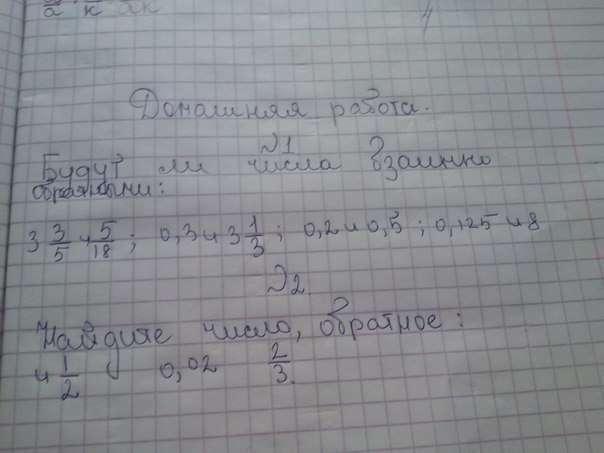 а к ак
Домашняя работа.
№1
Будут ли числа взаимно
обратными:
3 3/5 и 5/18; 0,3 и 3 1/3; 0,2 и 0,5; 0,125 и 8
№2
Найдите число, обратное:
4 1/2 0,02 2/3.